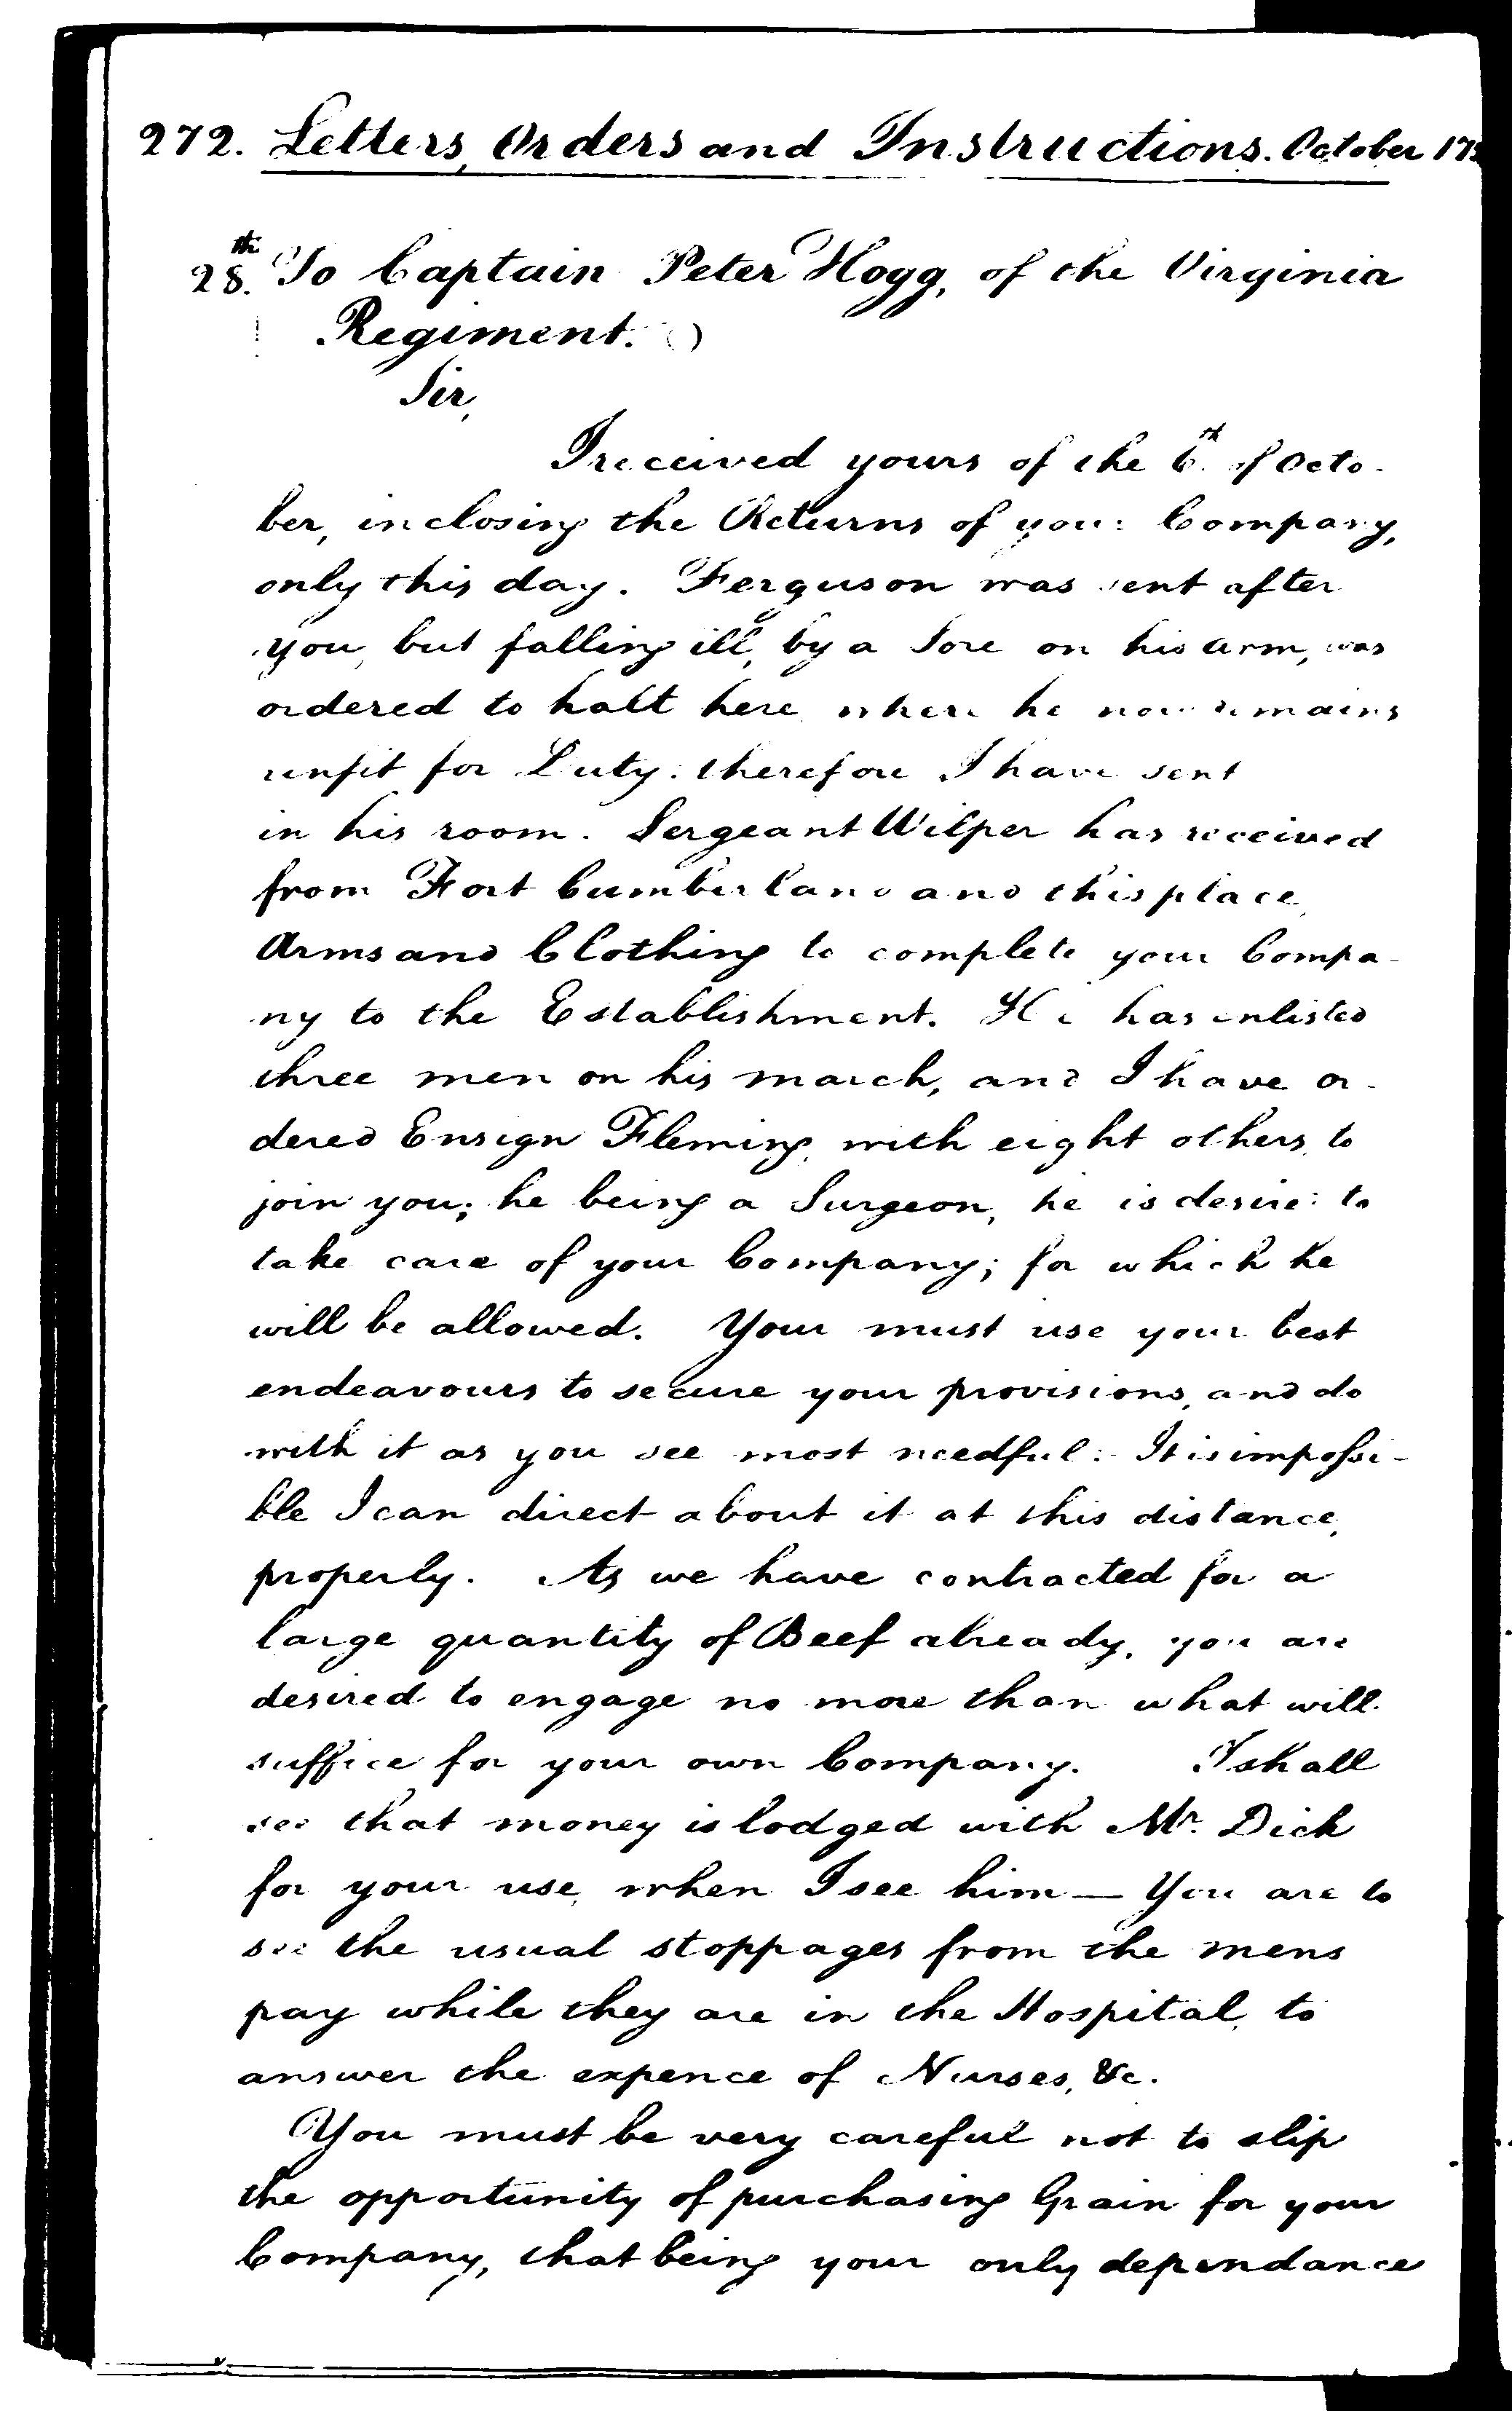 272. Letters, Orders and Instructions. October 175
28.th To Captain Peter Hogg, of the Virginia
Regiment.
Sir,
I received yours of the 6th. of Octo-
ber, inclosing the Returns of your Company,
only this day. Ferguson was sent after
you, but falling ill, by a Sore on his arm, was
ordered to halt here, where he now remains
unfit for Duty: therefore I have sent
in his room. Sergeant Wilper has received
from Fort Cumberland and this place,
Arms and Clothing to complete your Compa-
ny to the Establishment. He has enlisted
three men on his march, and I have or-
dered Ensign Fleming, with eight others, to
join you; he being a Surgeon, he is desired to
take care of your Company; for which he
will be allowed. Your must use your best
endeavours to secure your provisions, and do
with it as you see most needful: It is impossi-
ble I can direct about it at this distance,
properly. As we have contracted for a
large quantity of Beef already, you are
desired to engage no more than what will
suffice for your own Company. I shall
see that money is lodged with Mr. Dick
for your use, when I see him — You are to
see the usual stoppages from the mens
pay while they are in the Hospital, to
answer the expence of Nurses, &c.
You must be very careful not to slip
the opportunity of purchasing Grain for your
Company, that being your only dependance